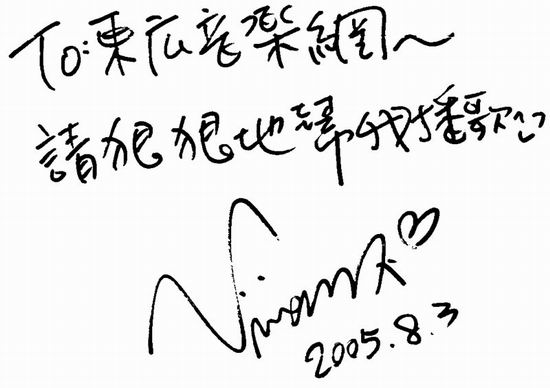 To:東広音樂網~
請狠狠地幫我播歌
2005.8.3